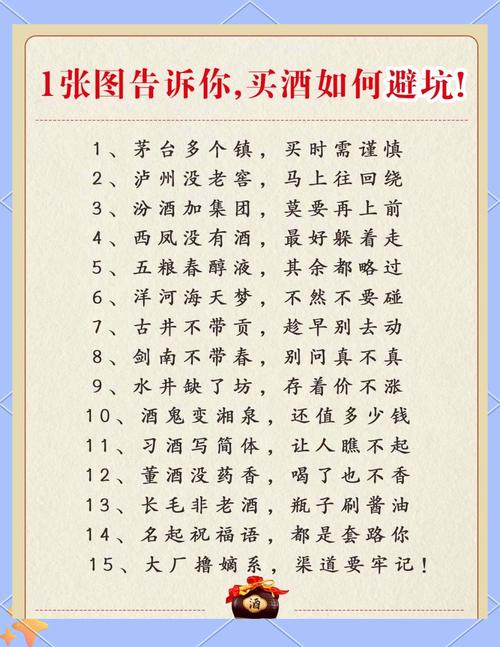 1张图告诉你,买酒如何避坑!
1、茅台多个镇，买时需谨慎
2、泸州没老窖，马上往回绕
3、汾酒加集团，莫要再上前
4、西凤没有酒，最好躲着走
5、五粮春醇液，其余都略过
6、洋河海天梦，不然不要碰
7、古井不带贡，趁早别去动
8、剑南不带春，别问真不真
9、水井缺了坊，存着价不涨
10、酒鬼变湘泉，还值多少钱
11、习酒写简体，让人瞧不起
12、董酒没药香，喝了也不香
13、长毛非老酒，瓶子刷酱油
14、名起祝福语，都是套路你
15、大厂撸嫡系，渠道要牢记！
酒